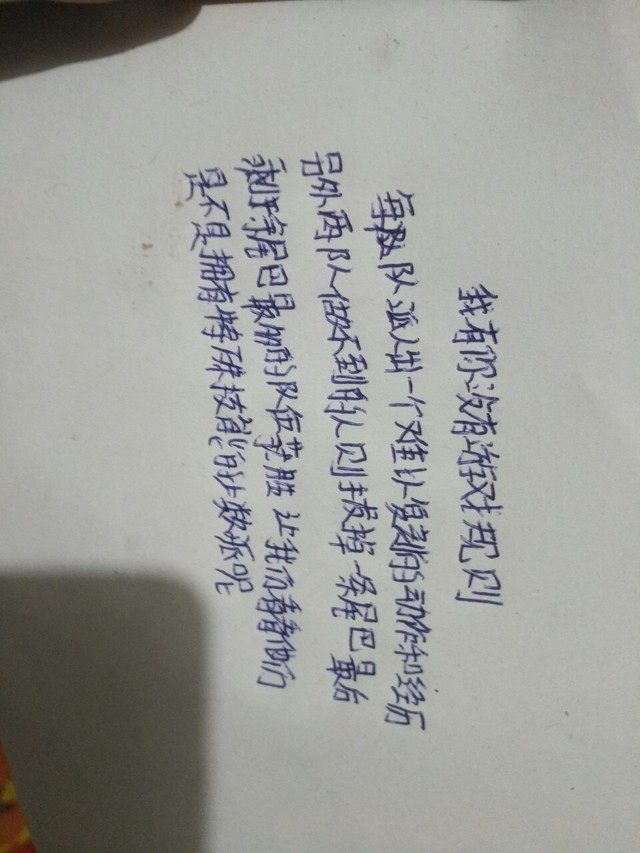 我有你没有游戏规则
每队派出一个难以复制的动作和经历
另外两队做不到的人则拔掉一条尾巴最后
剩余尾巴最多的队伍获胜 让我们看看他们
是不是拥有特殊技能的计数派呢